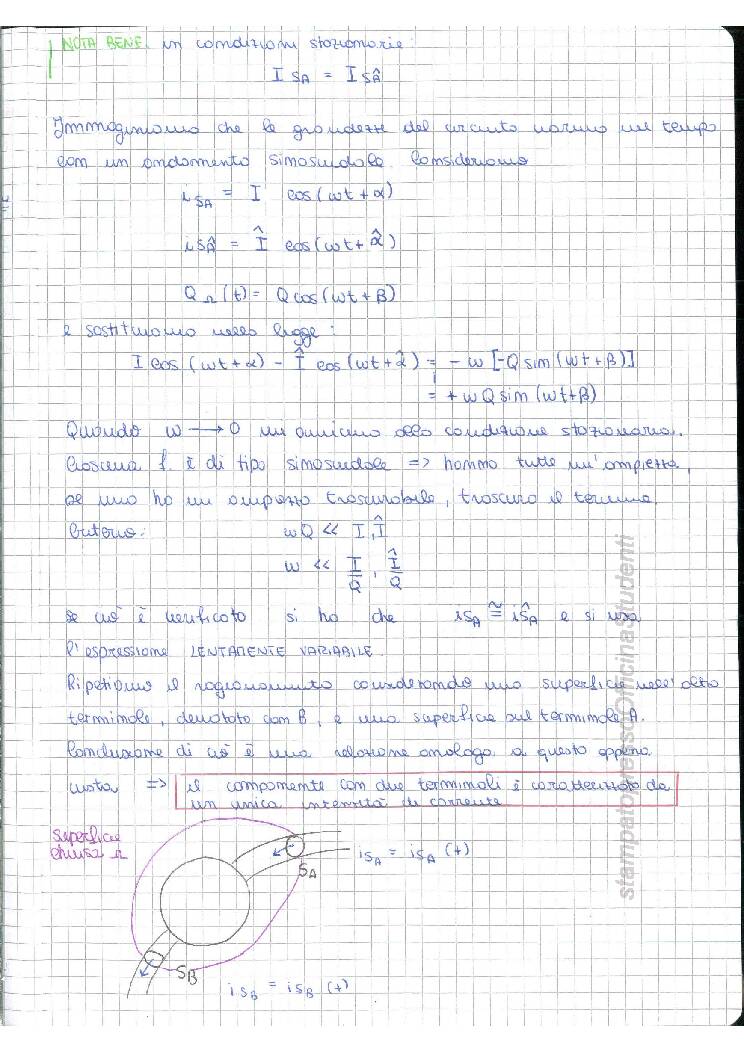 NOTA BENE: in condizioni stazionarie:
I SA = I SÂ
Immaginiamo che le grandezze del circuito varino nel tempo
con un andamento sinosuidale. Consideriamo
iSA = I cos(ωt+α)
iSÂ = Î cos(ωt+α̂)
QΩ(t) = Q cos(ωt+β)
e sostituiamo nella legge:
I cos(ωt+α) - Î cos(ωt+α̂) = -ω[-Q sin(ωt+β)]
= +ωQ sin(ωt+β)
Quando ω → 0 mi avvicino alla condizione stazionaria.
Ciascuna f. è di tipo sinosuidale => hanno tutte un'ampiezza,
se uno ha un ampiezza trascurabile, trascuro il termine.
Criterio: ωQ << I, Î
ω << I/Q, Î/Q
se ciò è verificato si ha che iSA ≅ iSÂ e si usa
l'espressione LENTAMENTE VARIABILE.
Ripetiamo il ragionamento considerando una superficie nell'altro
terminale, denotato con B, e una superficie sul terminale A.
Conclusione di ciò è una relazione analoga a questa appena
vista => il componente con due terminali è caratterizzato da
un unica intensità di corrente
superficie
chiusa Ω
iSA = iSA (t)
SA
SB
iSB = iSB (t)
stampatopressoOfficinaStudenti